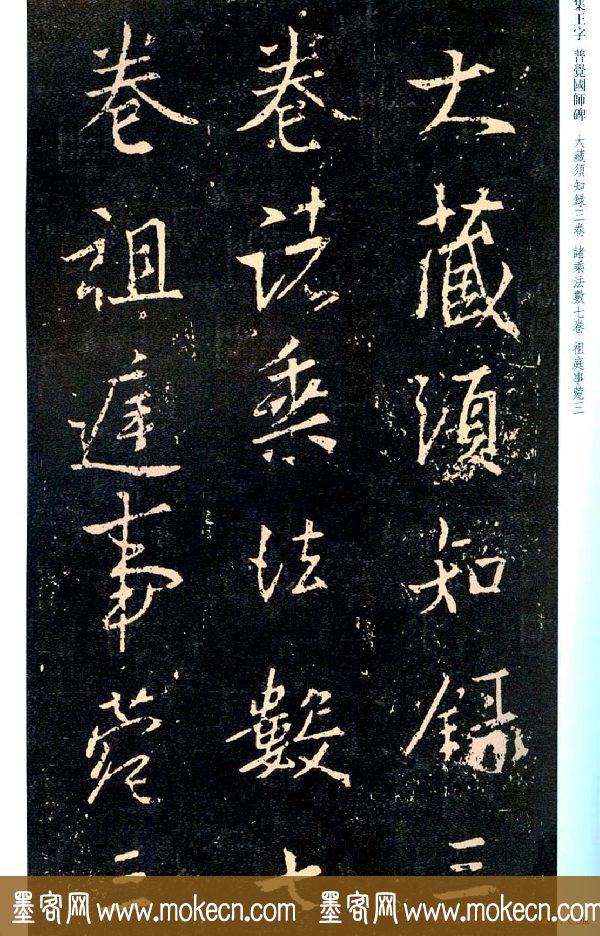 集王字 普覺國師碑 大藏須知録三卷 諸乘法數七卷 祖庭事菀三
大藏須知録三
卷諸乘法數七
卷祖庭事菀三
墨客网 www.mokecn.com 墨客网 www.mokecn.com